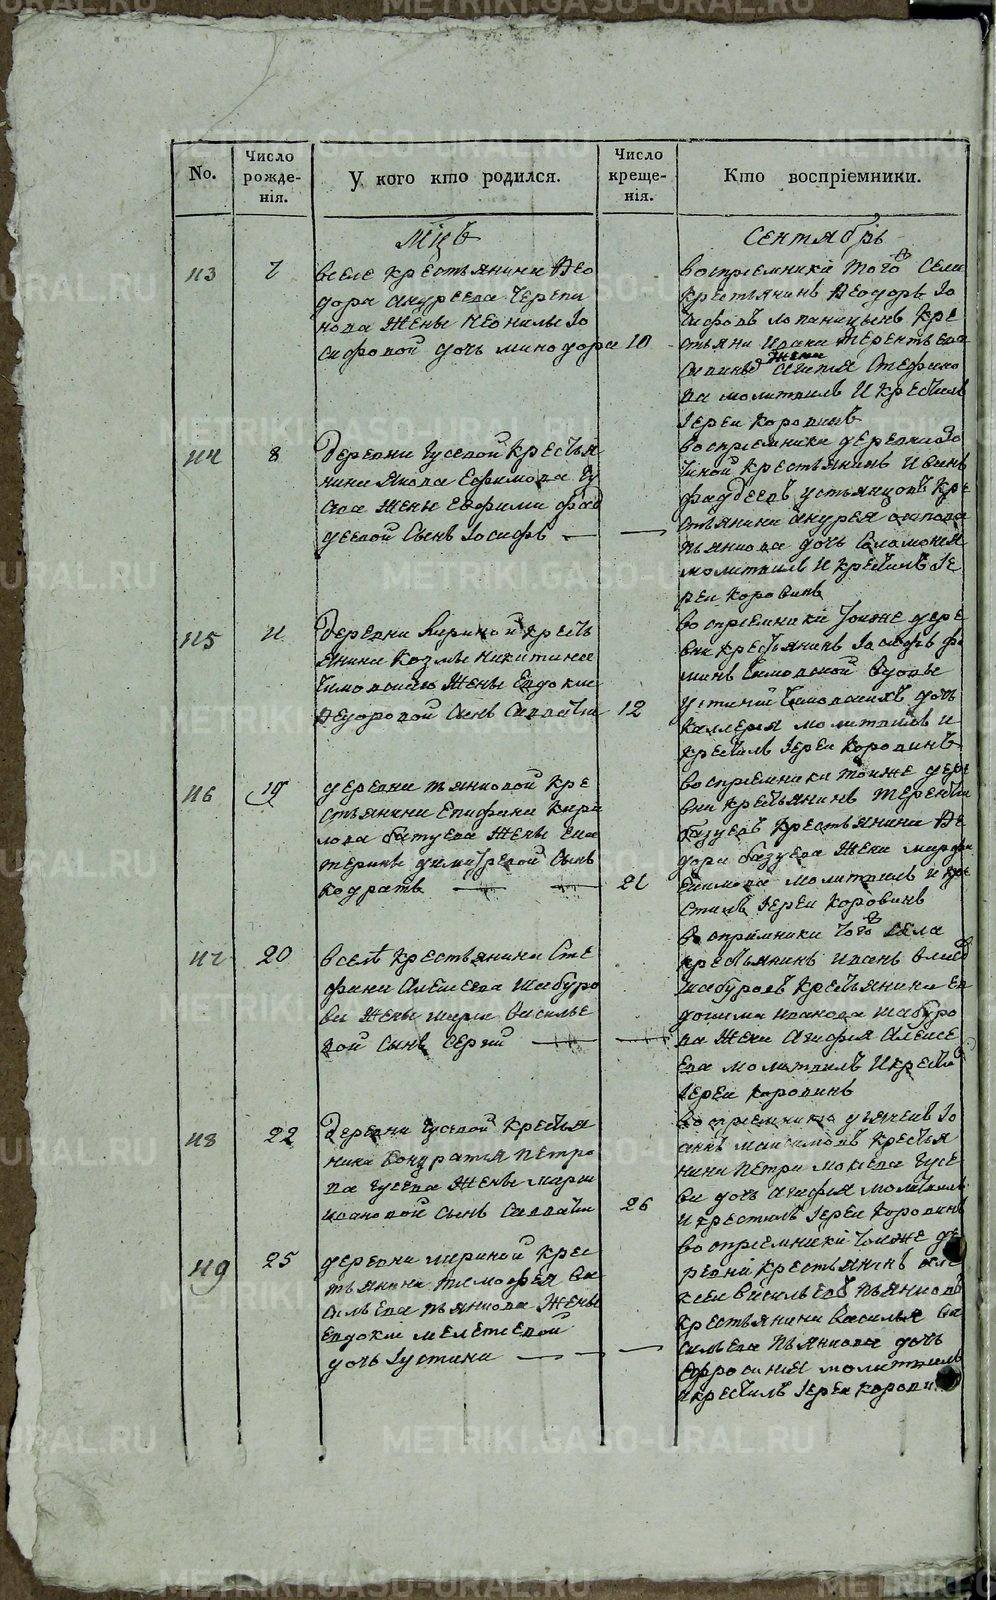 No.
Число рожде-нія.
У кого кто родился.
Число креще-нія.
Кто воспріемники.
Мцъ
Сентябрь
113
7
вселе крестьянина Ѳео
дора Андреева Черепа
нова жены Неонилы Іо
сифовой дочь минодора
10
воспріемники того села
крестьянинъ Ѳеодоръ Іо
сифовъ лопаницынъ кре
стьяни Ивана Терентьева
жена Агапія Стефано
ва молитвилъ и крестилъ
Іереи Коровинъ
114
8
Деревни Гусевой крестья
нина Якова Ефимова Гу
сева жены Евфими фад
деевой сынъ Іосифъ
воспріемники деревни
крестьянинъ Иванъ
фаддеевъ устьянцовъ кре
стьянина Андрея
пьянкова дочь Соломонея
молитвилъ и крестилъ Іе
реи Коровинъ
115
11
Деревни крестъ
янина Козмы Никитина
жены Евдокии
Ѳедоровой сынъ Савватіи
12
воспріемники тоиже дере
вни крестьянинъ Іосифъ фо
минъ вдовы
устиніи дочь
Каллерия молитвилъ и
крестилъ Іереи Коровинъ
116
19
деревни пьянковой кре
стьянина Епифана Кири
лова жены Ека
терины димитревой сынъ
кодратъ
21
воспріемники тоиже дере
вни крестьянинъ Терентіи
базуевъ крестьянина Ѳе
дора базуева жена марфа
Екимова молитвилъ и кре
стилъ Іереи Коровинъ
117
20
вселѣ крестьянина Сте
фана Алексеева шабуро
ва жены марии василье
вой сынъ Сергий
воспріемники того села
крестьянинъ Иванъ
шабуровъ крестьянина Ев
докима иванова шабуро
ва жена Агафия Алексе
ева молитвилъ и крести
Іереи Коровинъ
118
22
Деревни Гусевой крестья
нина Кондратія Петро
ва Гусева жены марии
ивановой сынъ Савватіи
26
воспріемники дьячекъ Іо
аннъ максимовъ крестья
нина Петра мокеева Гусе
ва дочь Агафия молитвилъ
и крестилъ Іереи Коровинъ
119
25
деревни мириной крес
тьянина тимофея ва
сильева пьянкова жены
Евдокіи мелетеевой
дочь Іустина
воспріемники тоиже де
ревни крестьянинъ Але
ксеи Васильевъ пьянковъ
крестьянина Василья ва
сильева пьянкова дочь
Ефросиния молитвилъ
и крестилъ Іереи Корови
METRIKI.GASO-URAL.RU